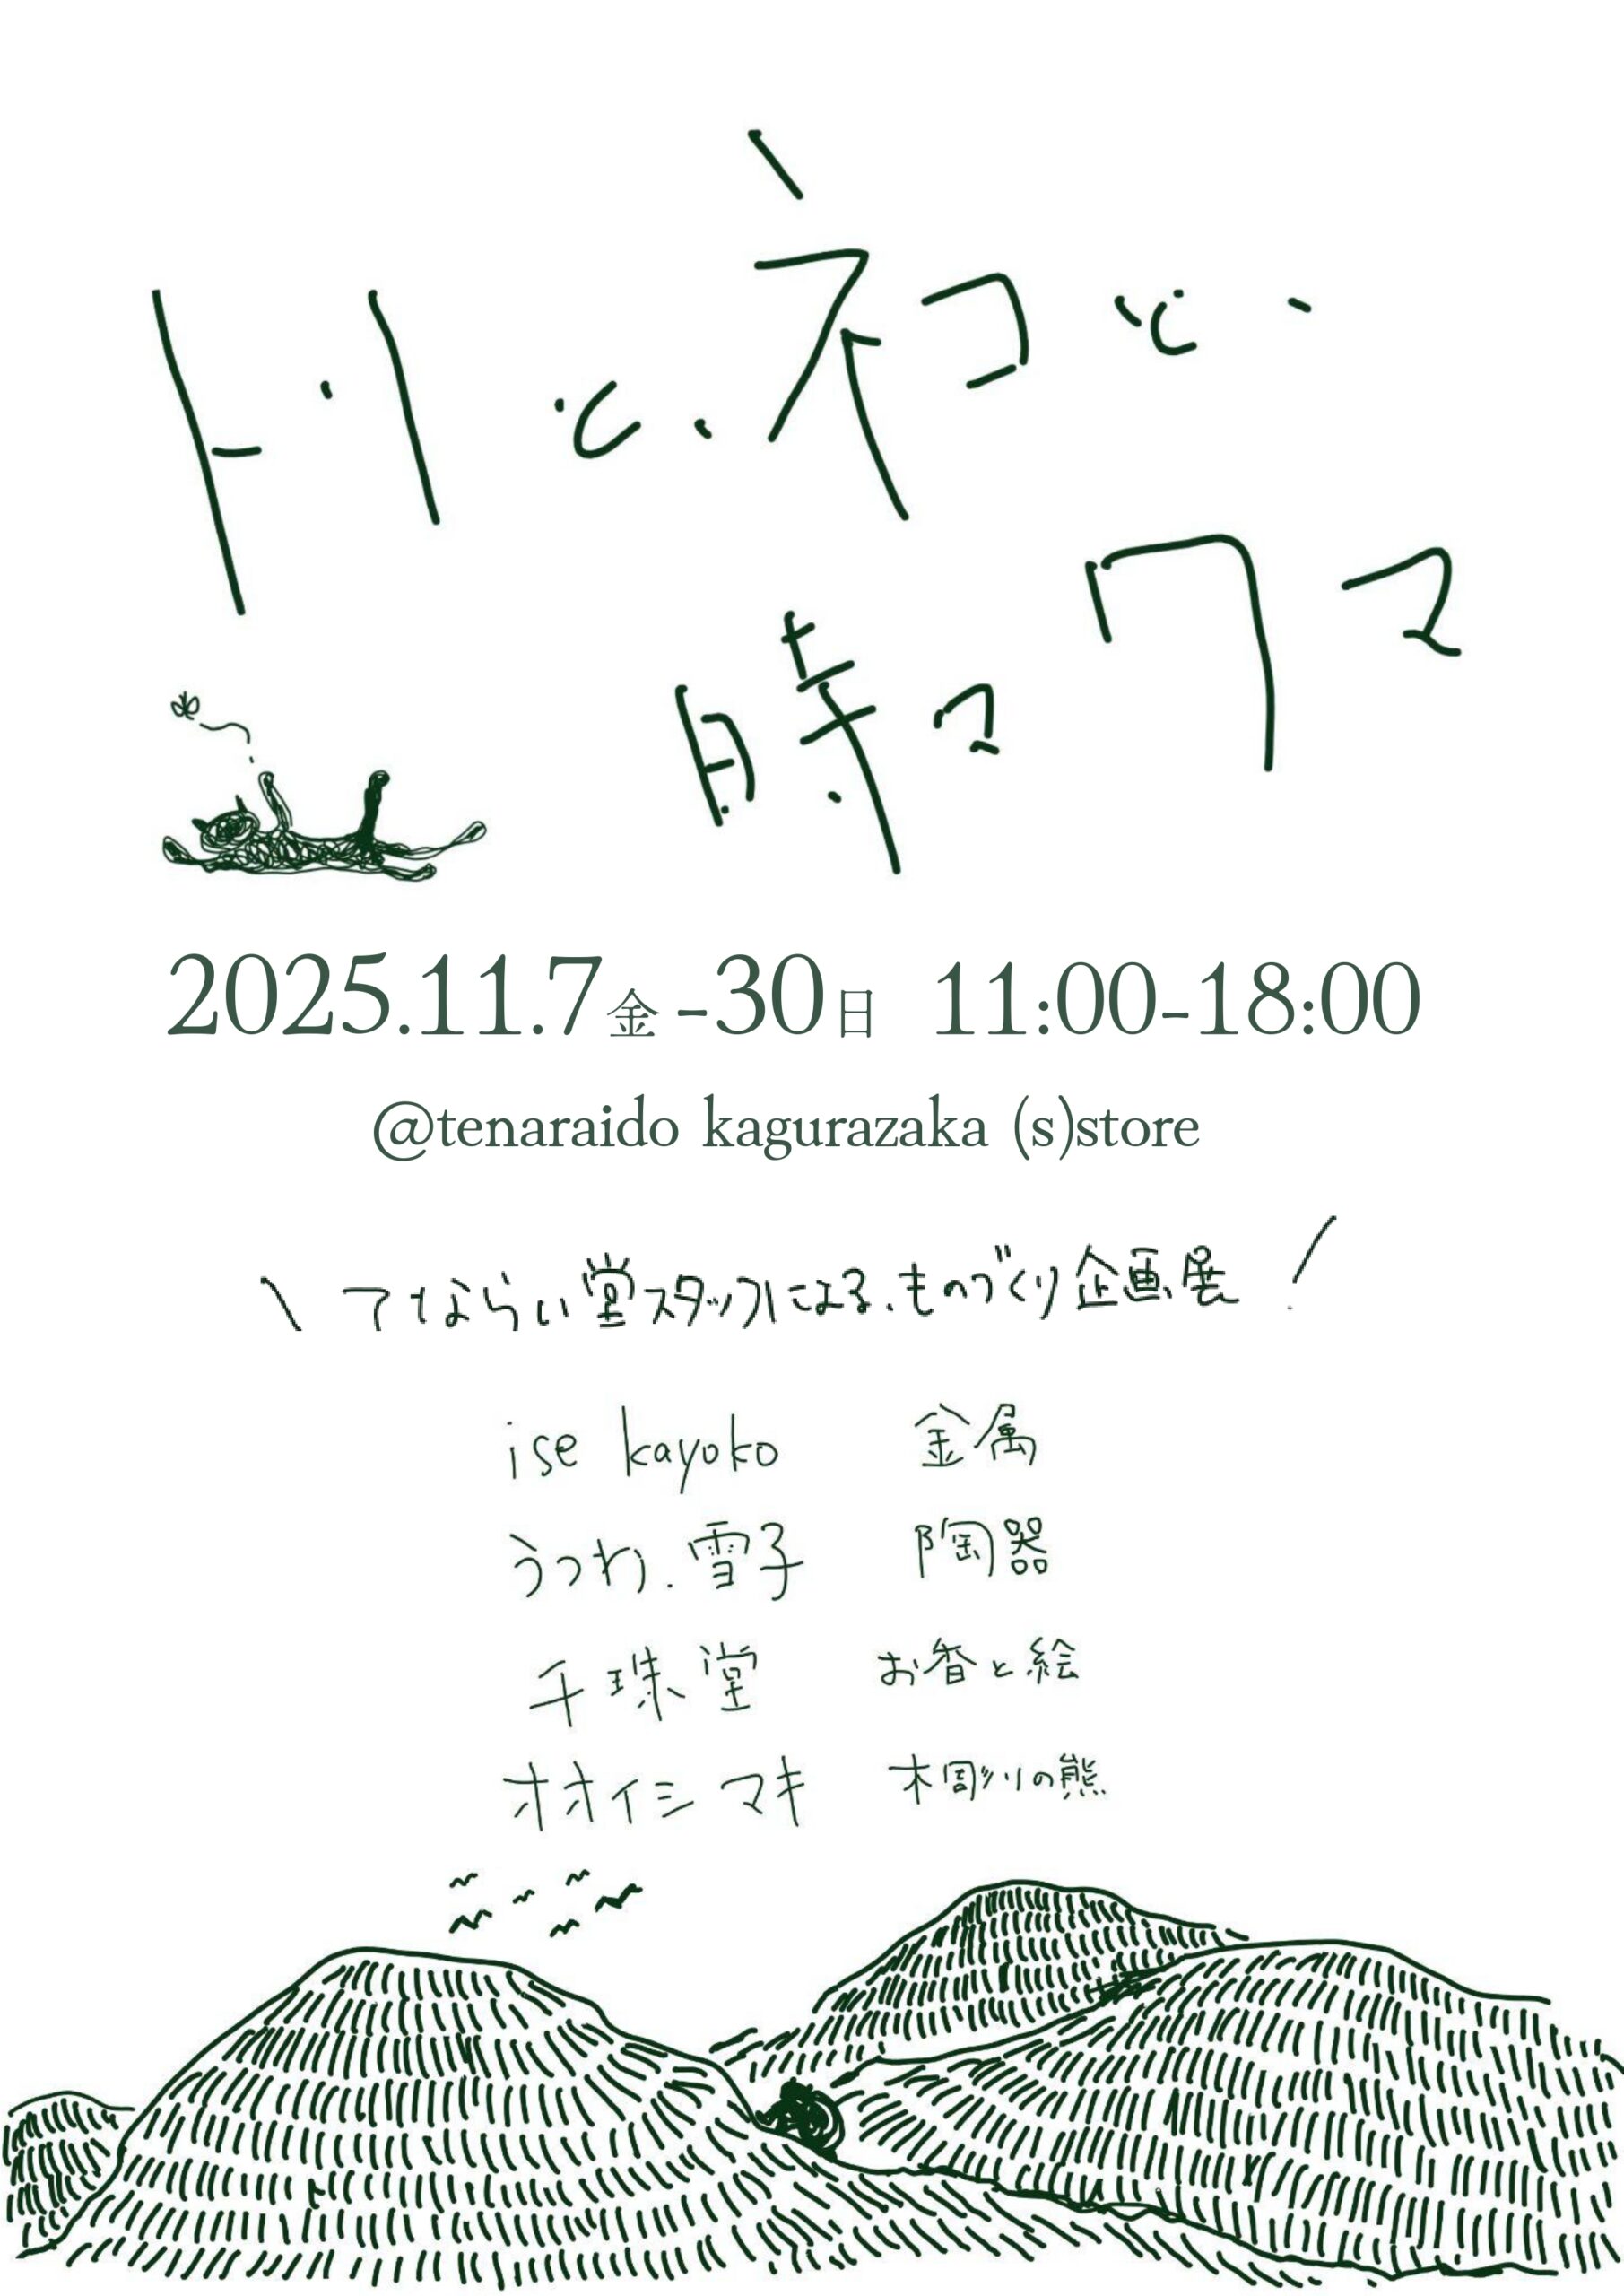 トリと、ネコと、
時々クマ
2025.11.7金-30日 11:00-18:00
@tenaraido kagurazaka (s)store
\ てならい堂スタッフによる、ものづくり企画展 /
ise kayoko 金属
うつわ、雪子 陶器
千珠堂 お香と絵
オオイシマキ 木彫りの熊